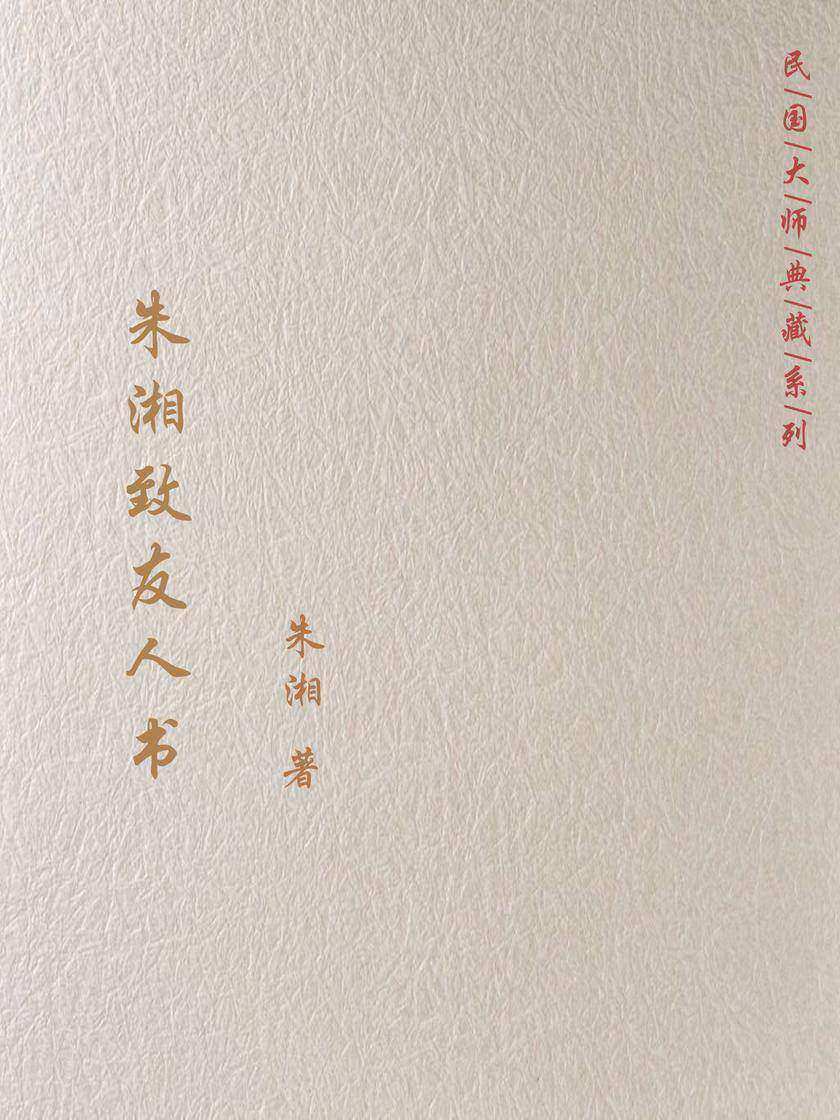 民|国|大|师|典|藏|系|列
朱湘致友人书
朱湘 著